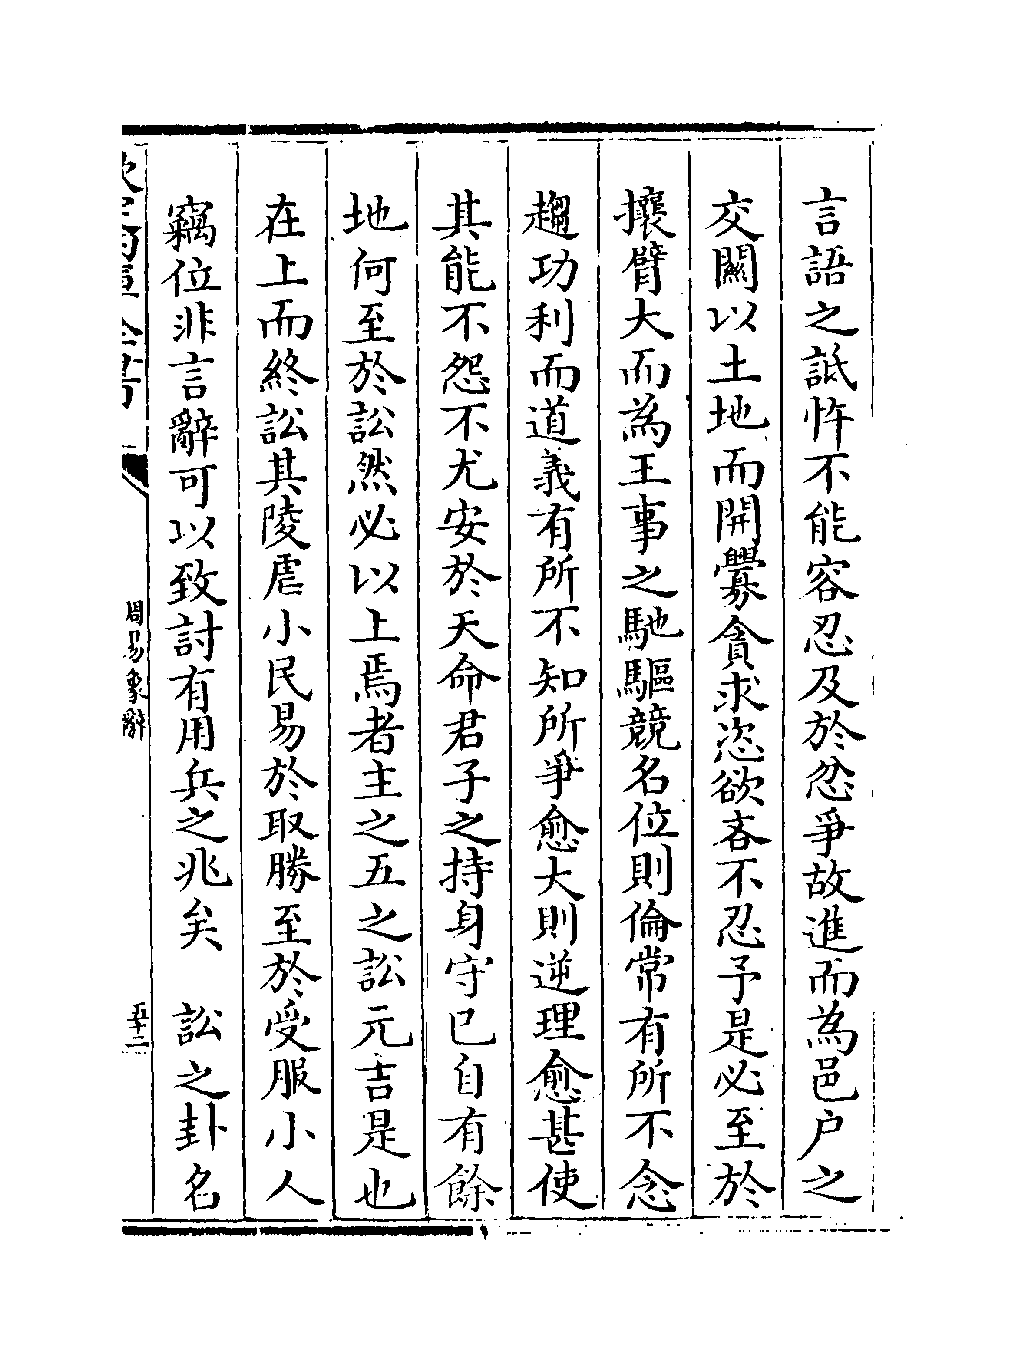 言語之詆忤不能容忍及於忿爭故進而為邑户之
交鬭以土地而開釁貪求恣欲吝不忍予是必至於
攘臂大而為王事之馳驅競名位則倫常有所不念
趨功利而道義有所不知所爭愈大則逆理愈甚使
其能不怨不尤安於天命君子之持身守已自有餘
地何至於訟然必以上焉者主之五之訟元吉是也
在上而終訟其陵虐小民易於取勝至於受服小人
竊位非言辭可以致討有用兵之兆矣　訟之卦名
周易象辭
五十二